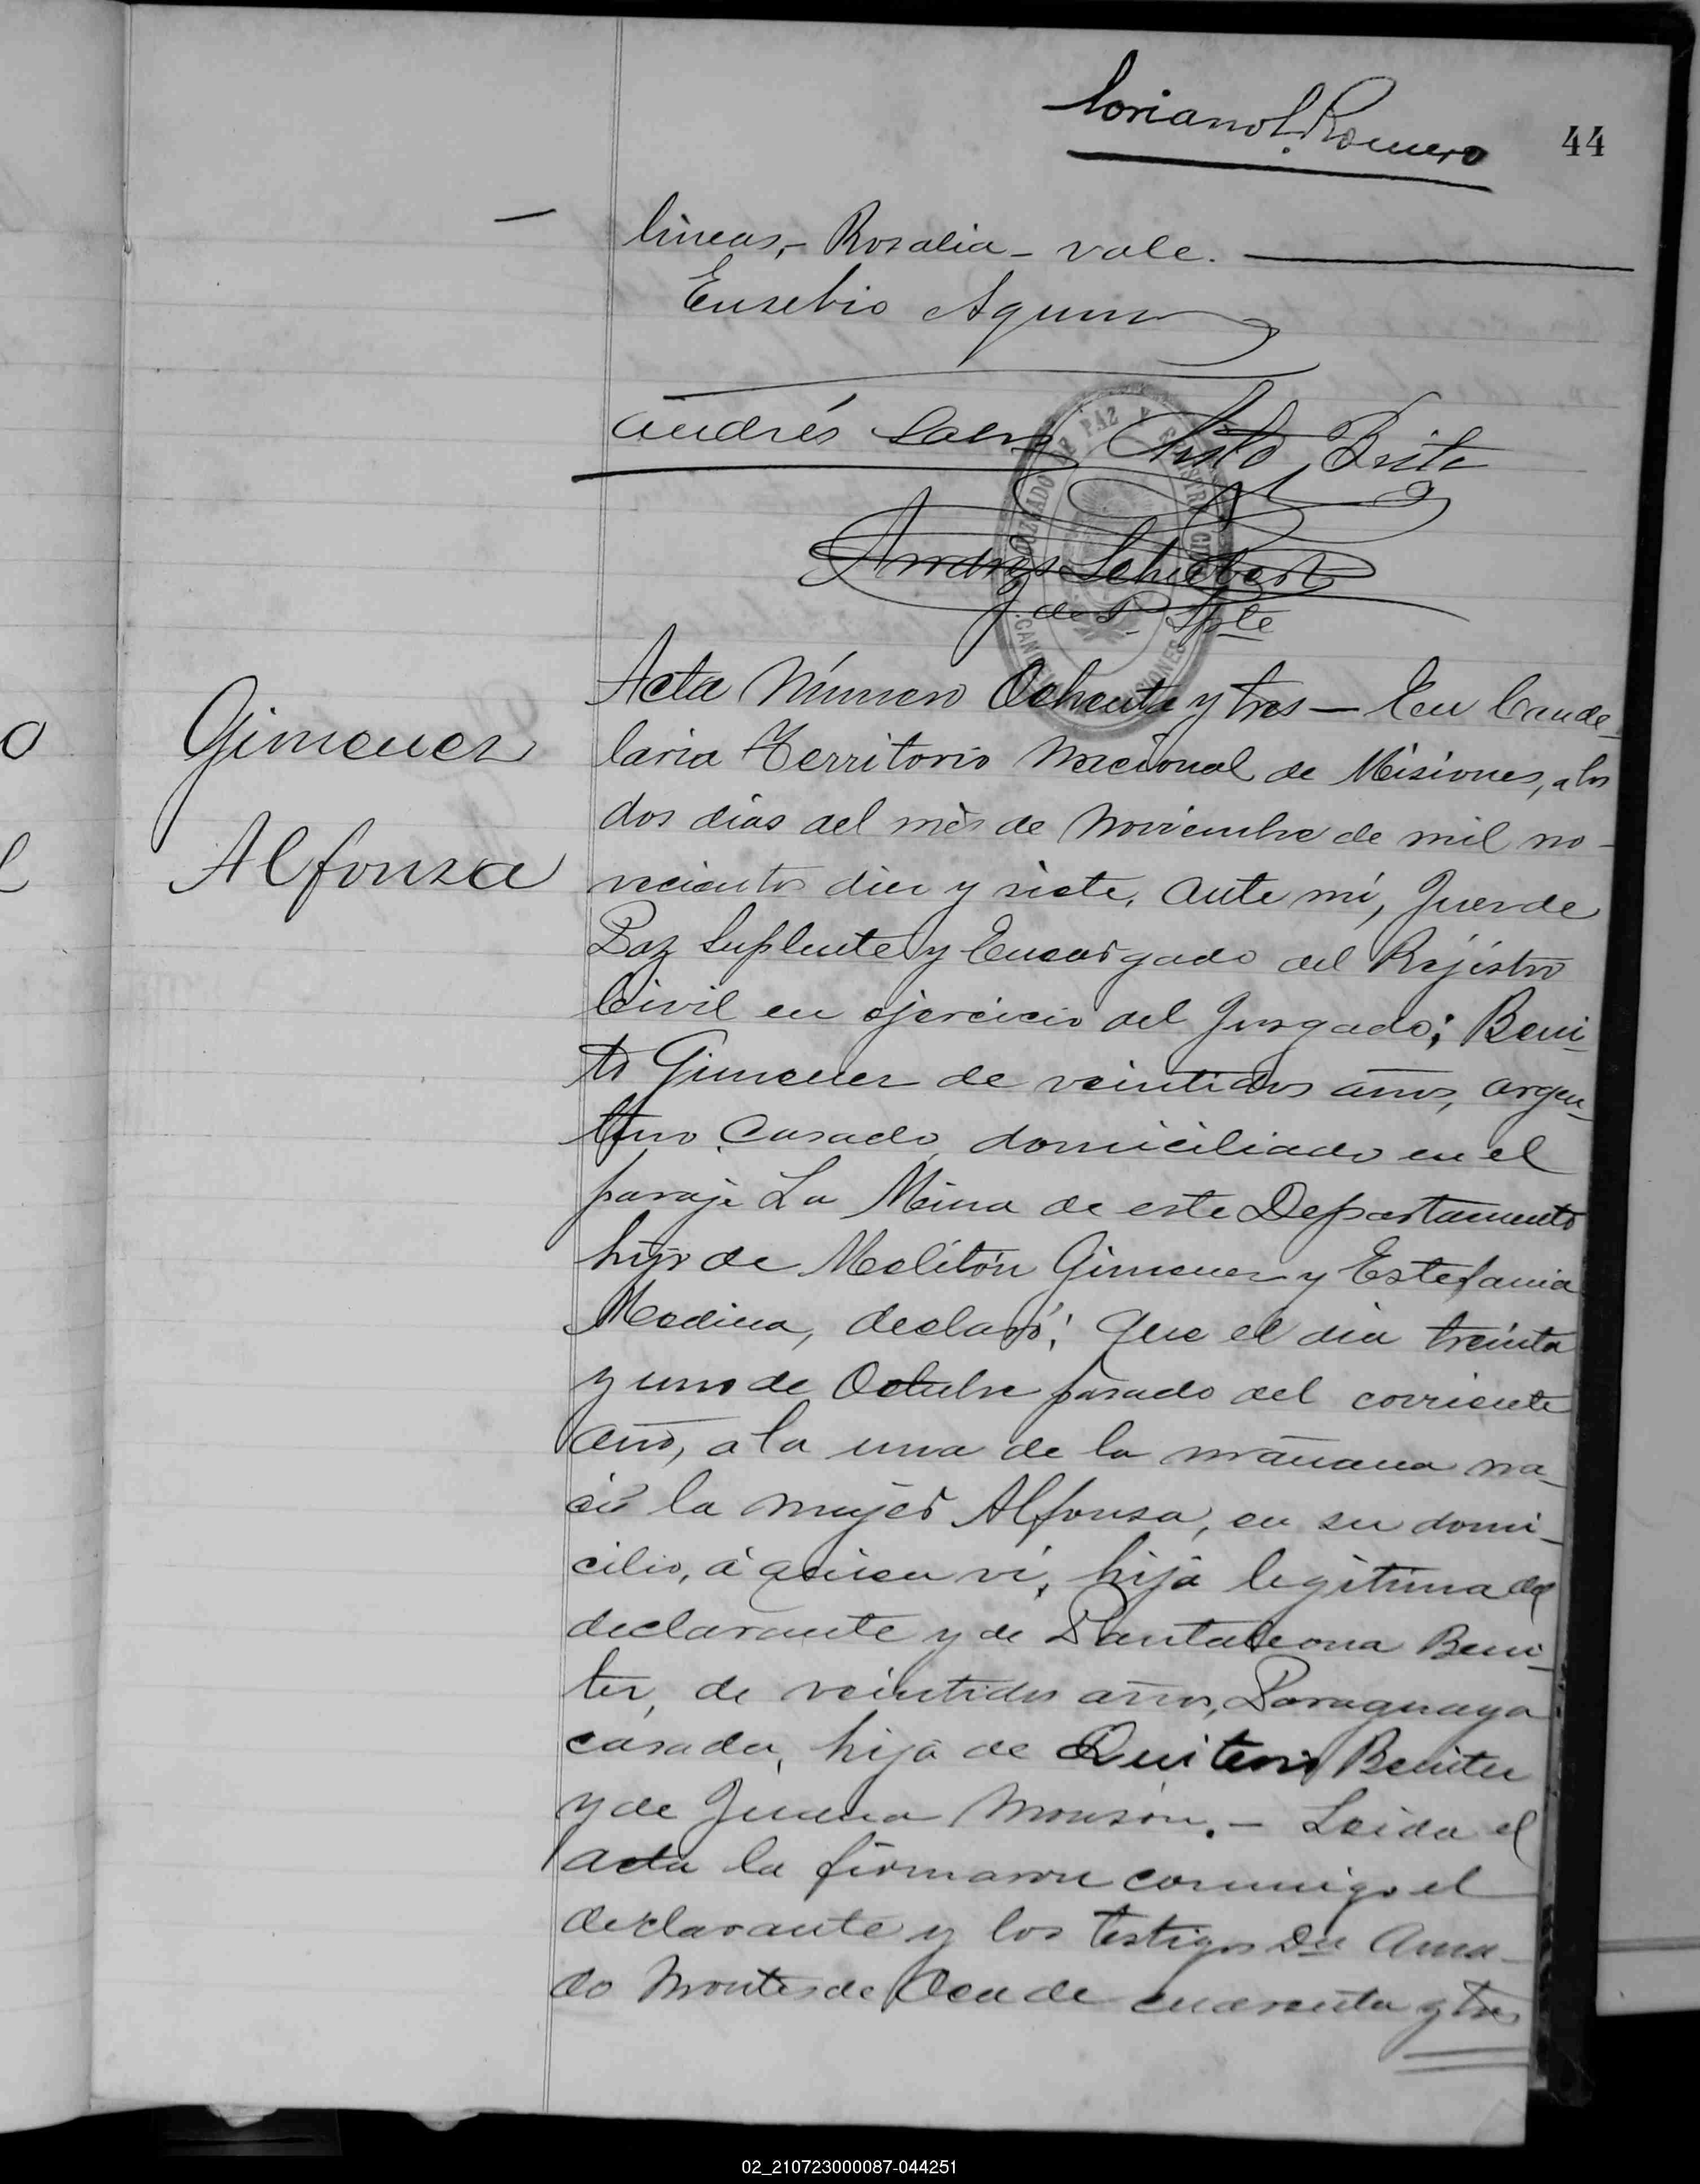 Soriano L. Romero
44
lineas,- Rosalia - vale.
Eusebio Aquino
Andrés Brite
JUZGADO DE PAZ Y REGISTRO CIVIL
MISIONES
J de P. Splte
Acta Número Ochenta y tres — En Cande-
laria Territorio Nacional de Misiones, a los
Gimenez
dos dias del mes de Noviembre de mil no-
Alfonsa
vecientos diez y siete, ante mí, Juez de
Paz Suplente y Encargado del Rejistro
Civil en ejercicio del Juzgado; Beni-
to Gimenez de veintidos años, argen-
tino casado, domiciliado en el
paraje La Mina de este Departamento
hijo de Melitón Gimenez y Estefania
Medina, declaró: Que el dia treinta
y uno de Octubre pasado del corriente
año, a la una de la mañana na-
ció la mujer Alfonsa, en su domi-
cilio, á quien ví, hija legitima del
declarante y de Pantaleona Beni-
tez, de veintidos años, Paraguaya
casada, hija de Quiterio Benitez
y de Juana Monson.- Leida el
acta la firmaron conmigo el
declarante y los testigos Dn Ama-
do Montes de Oca de cuarenta y tres
02_210723000087-044251